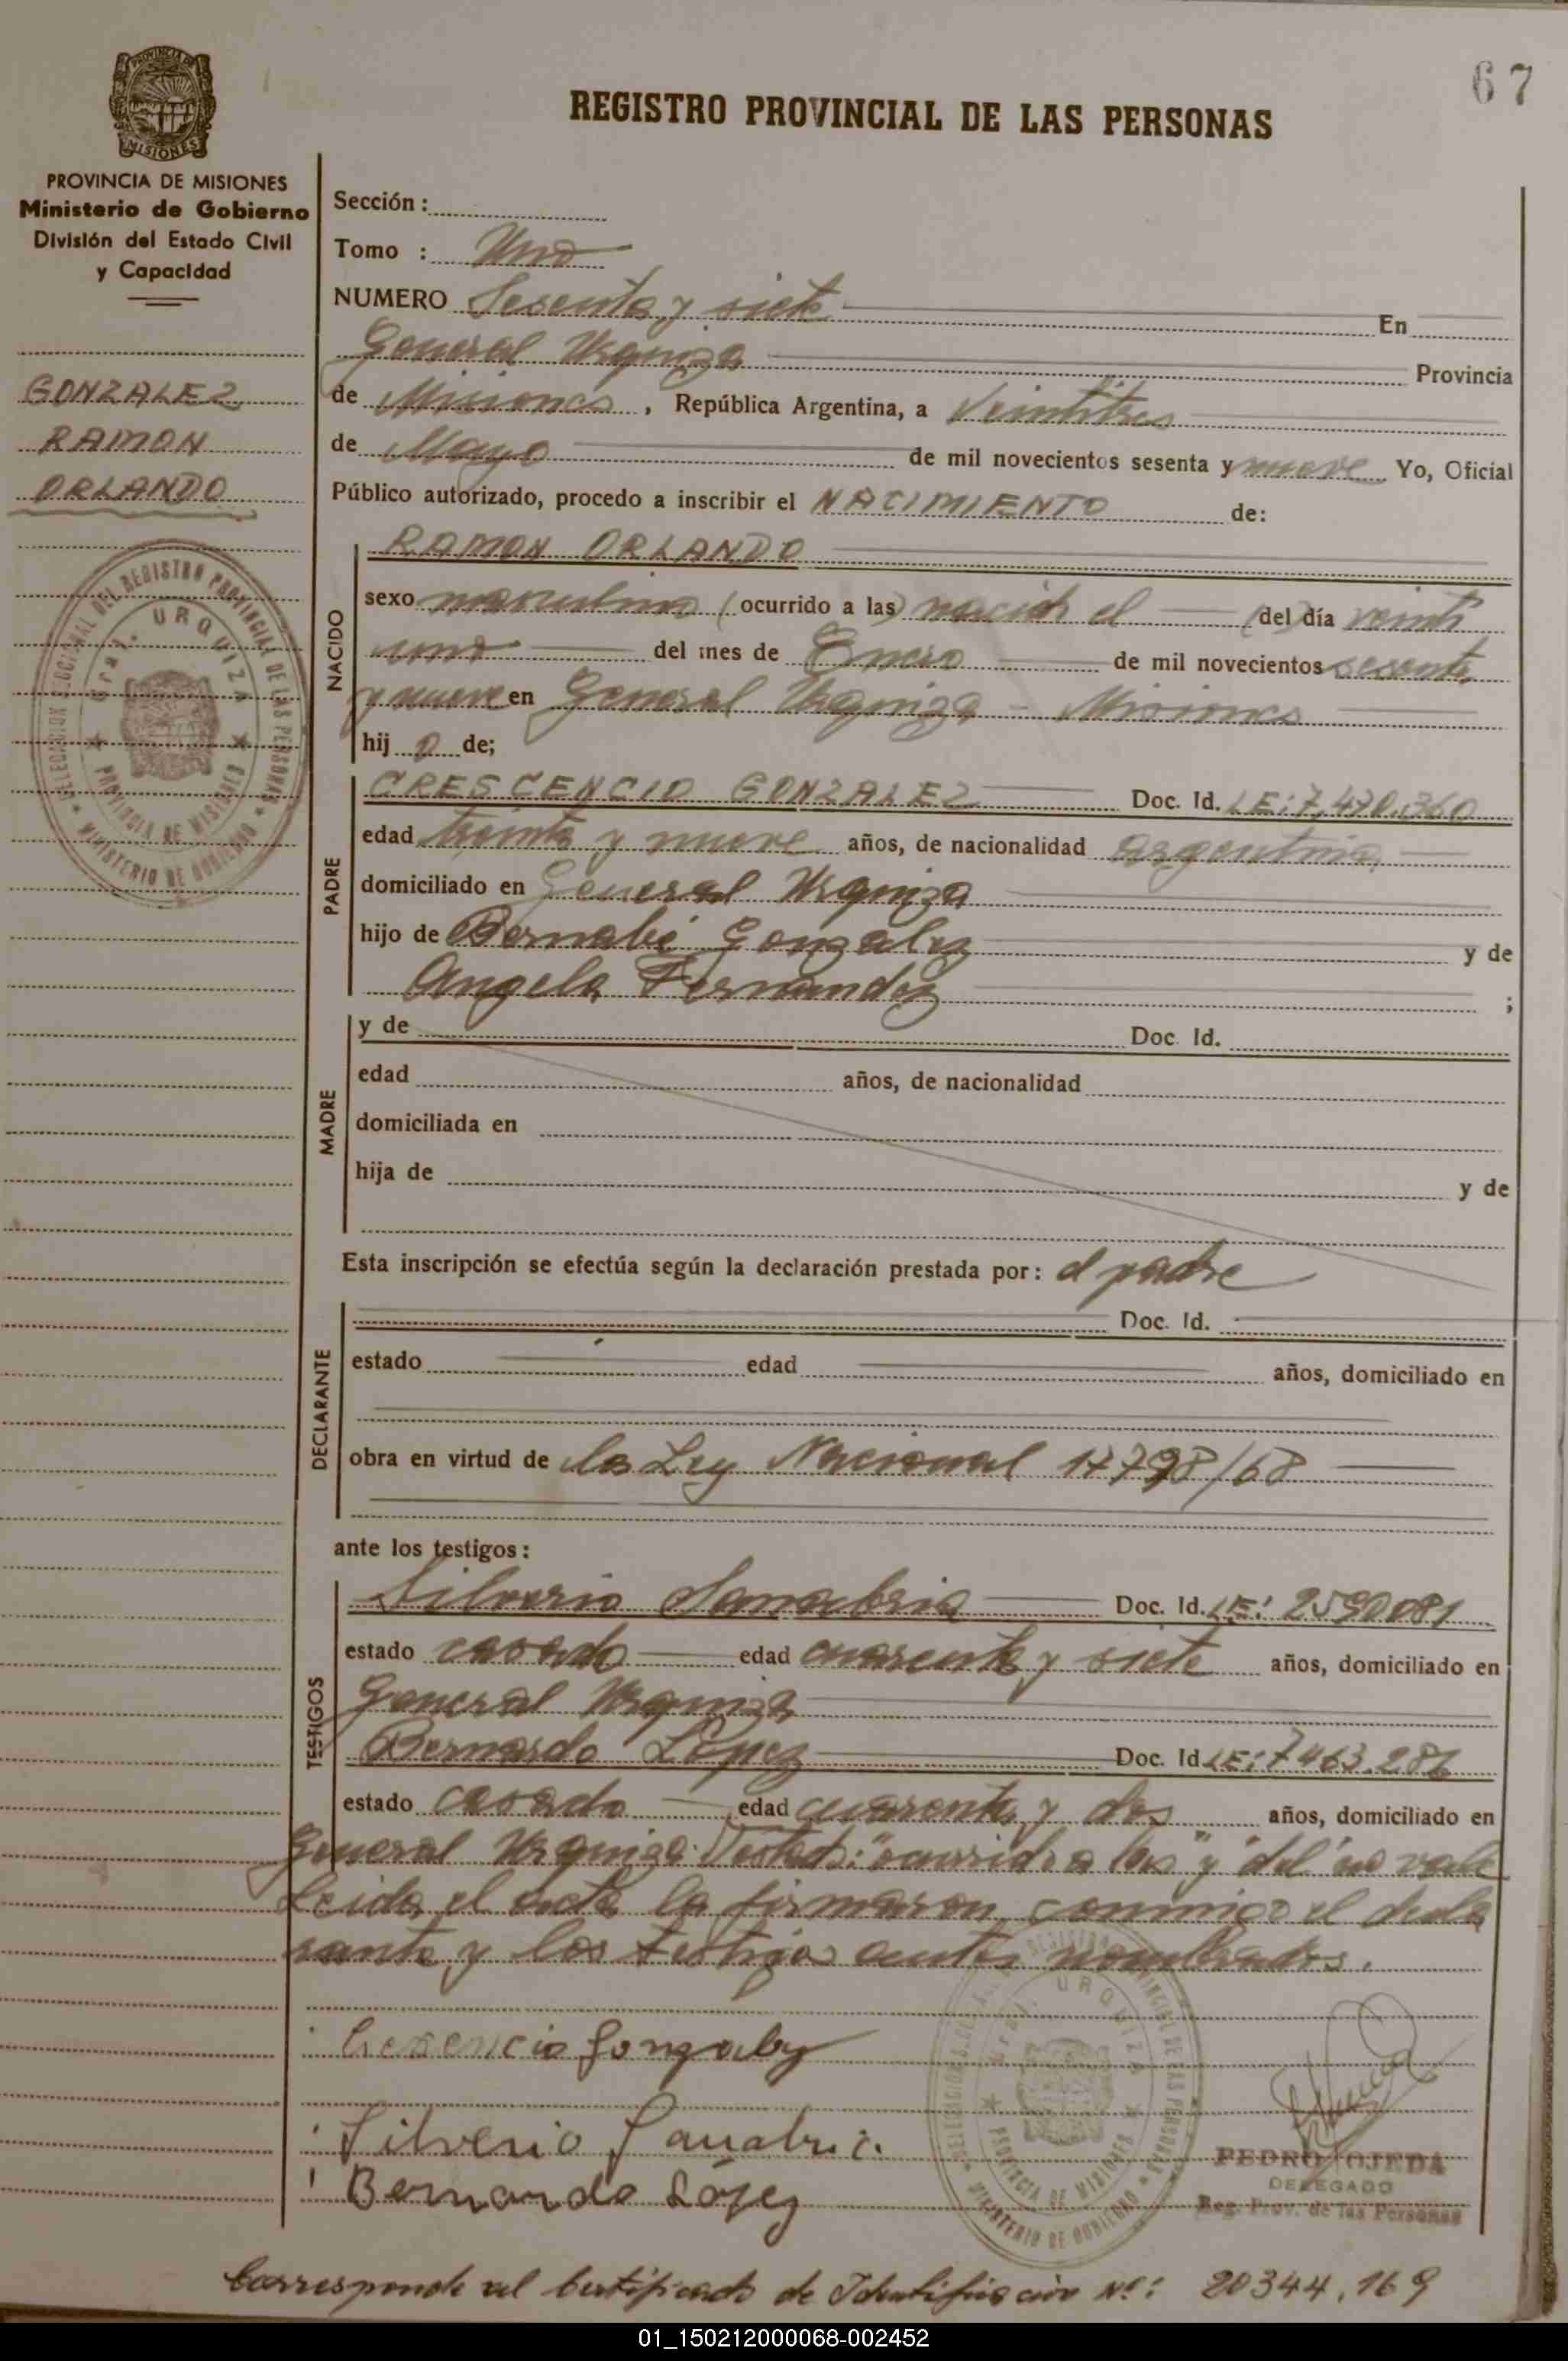 67
REGISTRO PROVINCIAL DE LAS PERSONAS
PROVINCIA DE MISIONES
Ministerio de Gobierno
División del Estado Civil
y Capacidad
GONZALEZ
RAMON
ORLANDO
Sección :
Tomo : Uno
NUMERO Sesenta y siete En
General Urquiza Provincia
de Misiones, República Argentina, a Veintitres
de Mayo de mil novecientos sesenta y nueve Yo, Oficial
Público autorizado, procedo a inscribir el NACIMIENTO de:
NACIDO
RAMON ORLANDO
sexo masculino (ocurrido a las) nacido el (del) día veinti
uno del mes de Enero de mil novecientos sesenta
y nueve en General Urquiza - Misiones
hij o de;
PADRE
CRESCENCIO GONZALEZ Doc. Id. LE: 7,470.360
edad treinta y nueve años, de nacionalidad argentina
domiciliado en General Urquiza
hijo de Bernabé Gonzalez y de
Angela Fernandez ;
MADRE
y de Doc. Id.
edad años, de nacionalidad
domiciliada en
hija de y de
Esta inscripción se efectúa según la declaración prestada por: el padre
DECLARANTE
Doc. Id.
estado edad años, domiciliado en
obra en virtud de la Ley Nacional 17798/68
ante los testigos:
TESTIGOS
Silverio Sanabria Doc. Id. LE: 2590081
estado casado edad cuarenta y siete años, domiciliado en
General Urquiza
Bernardo López Doc. Id LE: 7463.282
estado casado edad cuarenta y dos años, domiciliado en
General Urquiza. Testado: "ocurrido a las" y "del" no vale
Leida el acta la firmaron conmigo el decla
rante y los testigos antes nombrados.
Cresencio Gonzalez
Silverio Sanabria
Bernardo López
PEDRO OJEDA
DELEGADO
Reg. Prov. de las Personas
DELEGACION SECCIONAL DEL REGISTRO PROVINCIAL DE LAS PERSONAS
Gral. URQUIZA
PROVINCIA DE MISIONES
MINISTERIO DE GOBIERNO
Corresponde al Certificado de Identificación Nº: 20344.169
01_150212000068-002452